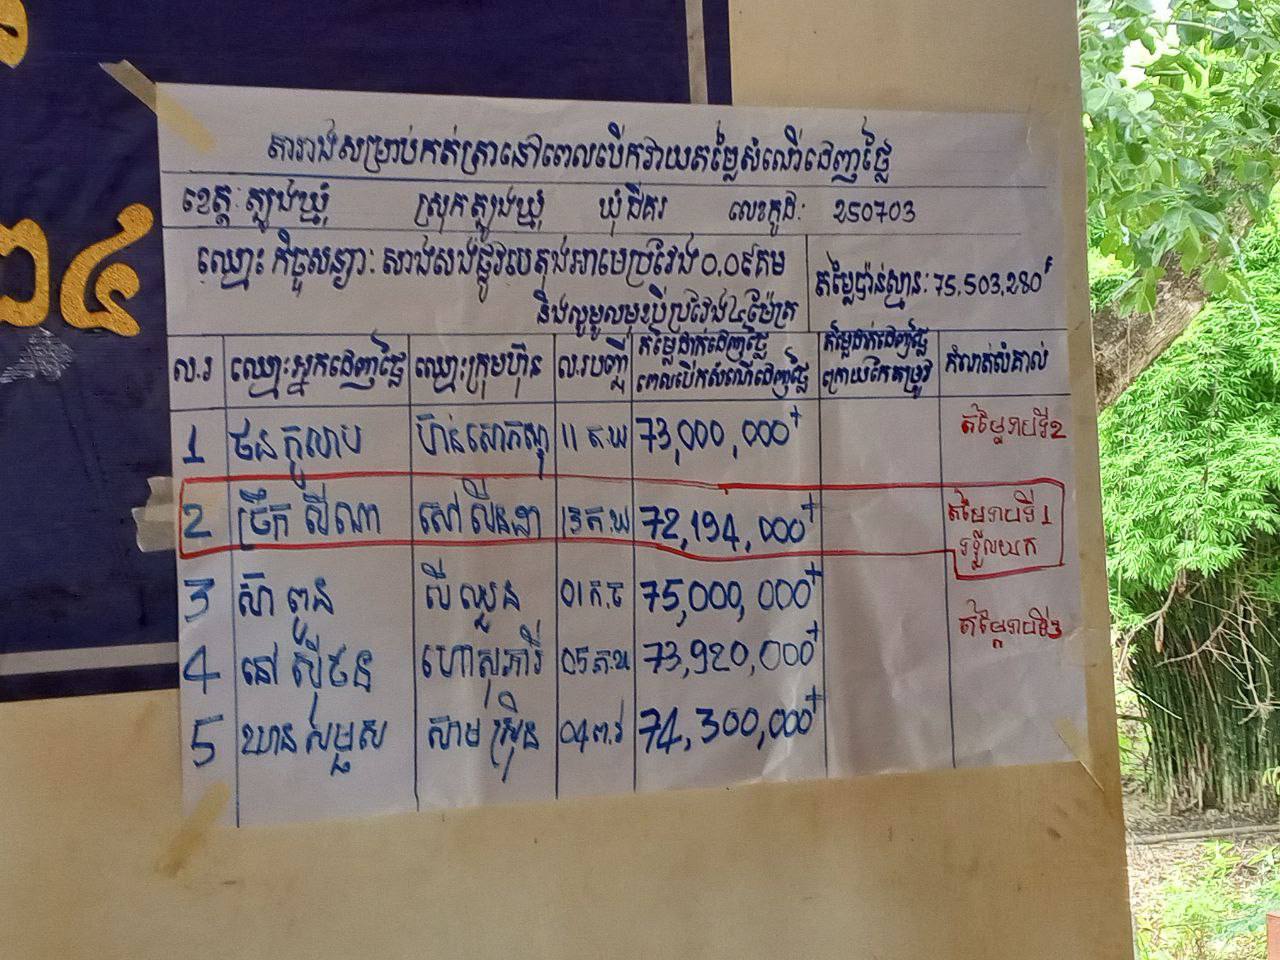 ២៤
តារាងសម្រាប់កត់ត្រានៅពេលបើកវាយតម្លៃសំណើដេញថ្លៃ
ខេត្តៈ ត្បូងឃ្មុំ ស្រុកត្បូងឃ្មុំ ឃុំជីគរ លេខកូដៈ 250703
ឈ្មោះ កិច្ចសន្យាៈ សាងសង់ផ្លូវបេតុងអាមេប្រវែង០.០៩គម
និងលូមូលមុខបីប្រវែង៤ម៉ែត្រ
តម្លៃប៉ាន់ស្មានៈ 75,503,280៛
ល.រ ឈ្មោះអ្នកដេញថ្លៃ ឈ្មោះក្រុមហ៊ុន ល.របញ្ជី តម្លៃដាក់ដេញថ្លៃ ពេលបើកសំណើដេញថ្លៃ តម្លៃដាក់ដេញថ្លៃ ក្រោយកែតម្រូវ កំណត់សំគាល់
1 ផន កូលាប ប៊ន់សោភណ្ឌ 11 ត.ឃ 73,000,000៛ តម្លៃទាបទី2
2 ច្រឹក ស៊ីណា សៅ ស៊ីនដា 13 ត.ឃ 72,194,000៛ តម្លៃទាបទី1
ទទួលយក
3 ស៊ា ពួន ប៊ី ឈួន 01 ក.ច 75,000,000៛
4 នៅ ស៊ីផន ហោសុភារី 05 ត.ឃ 73,920,000៛ តម្លៃទាបទី3
5 ឃាន សម្ផស្ស សាម ស្រ៊ិន 04 ព.វ 74,300,000៛